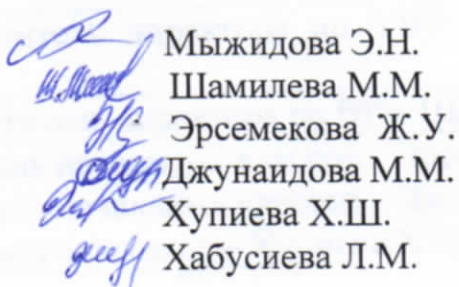 Мыжидова Э.Н.
Шамилева М.М.
Эрсемекова Ж.У.
Джунаидова М.М.
Хупиева Х.Ш.
Хабусиева Л.М.